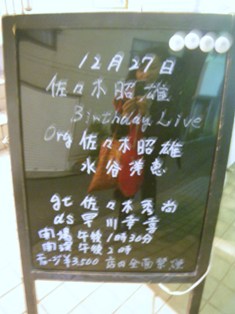 12月27日
佐々木昭雄
Birthday Live
Org 佐々木昭雄
水谷浩恵
gt 佐々木秀尚
ds 早川幸喜
開場 午後1時30分
開演 午後2時
チャージ¥3,500 店内全面禁煙